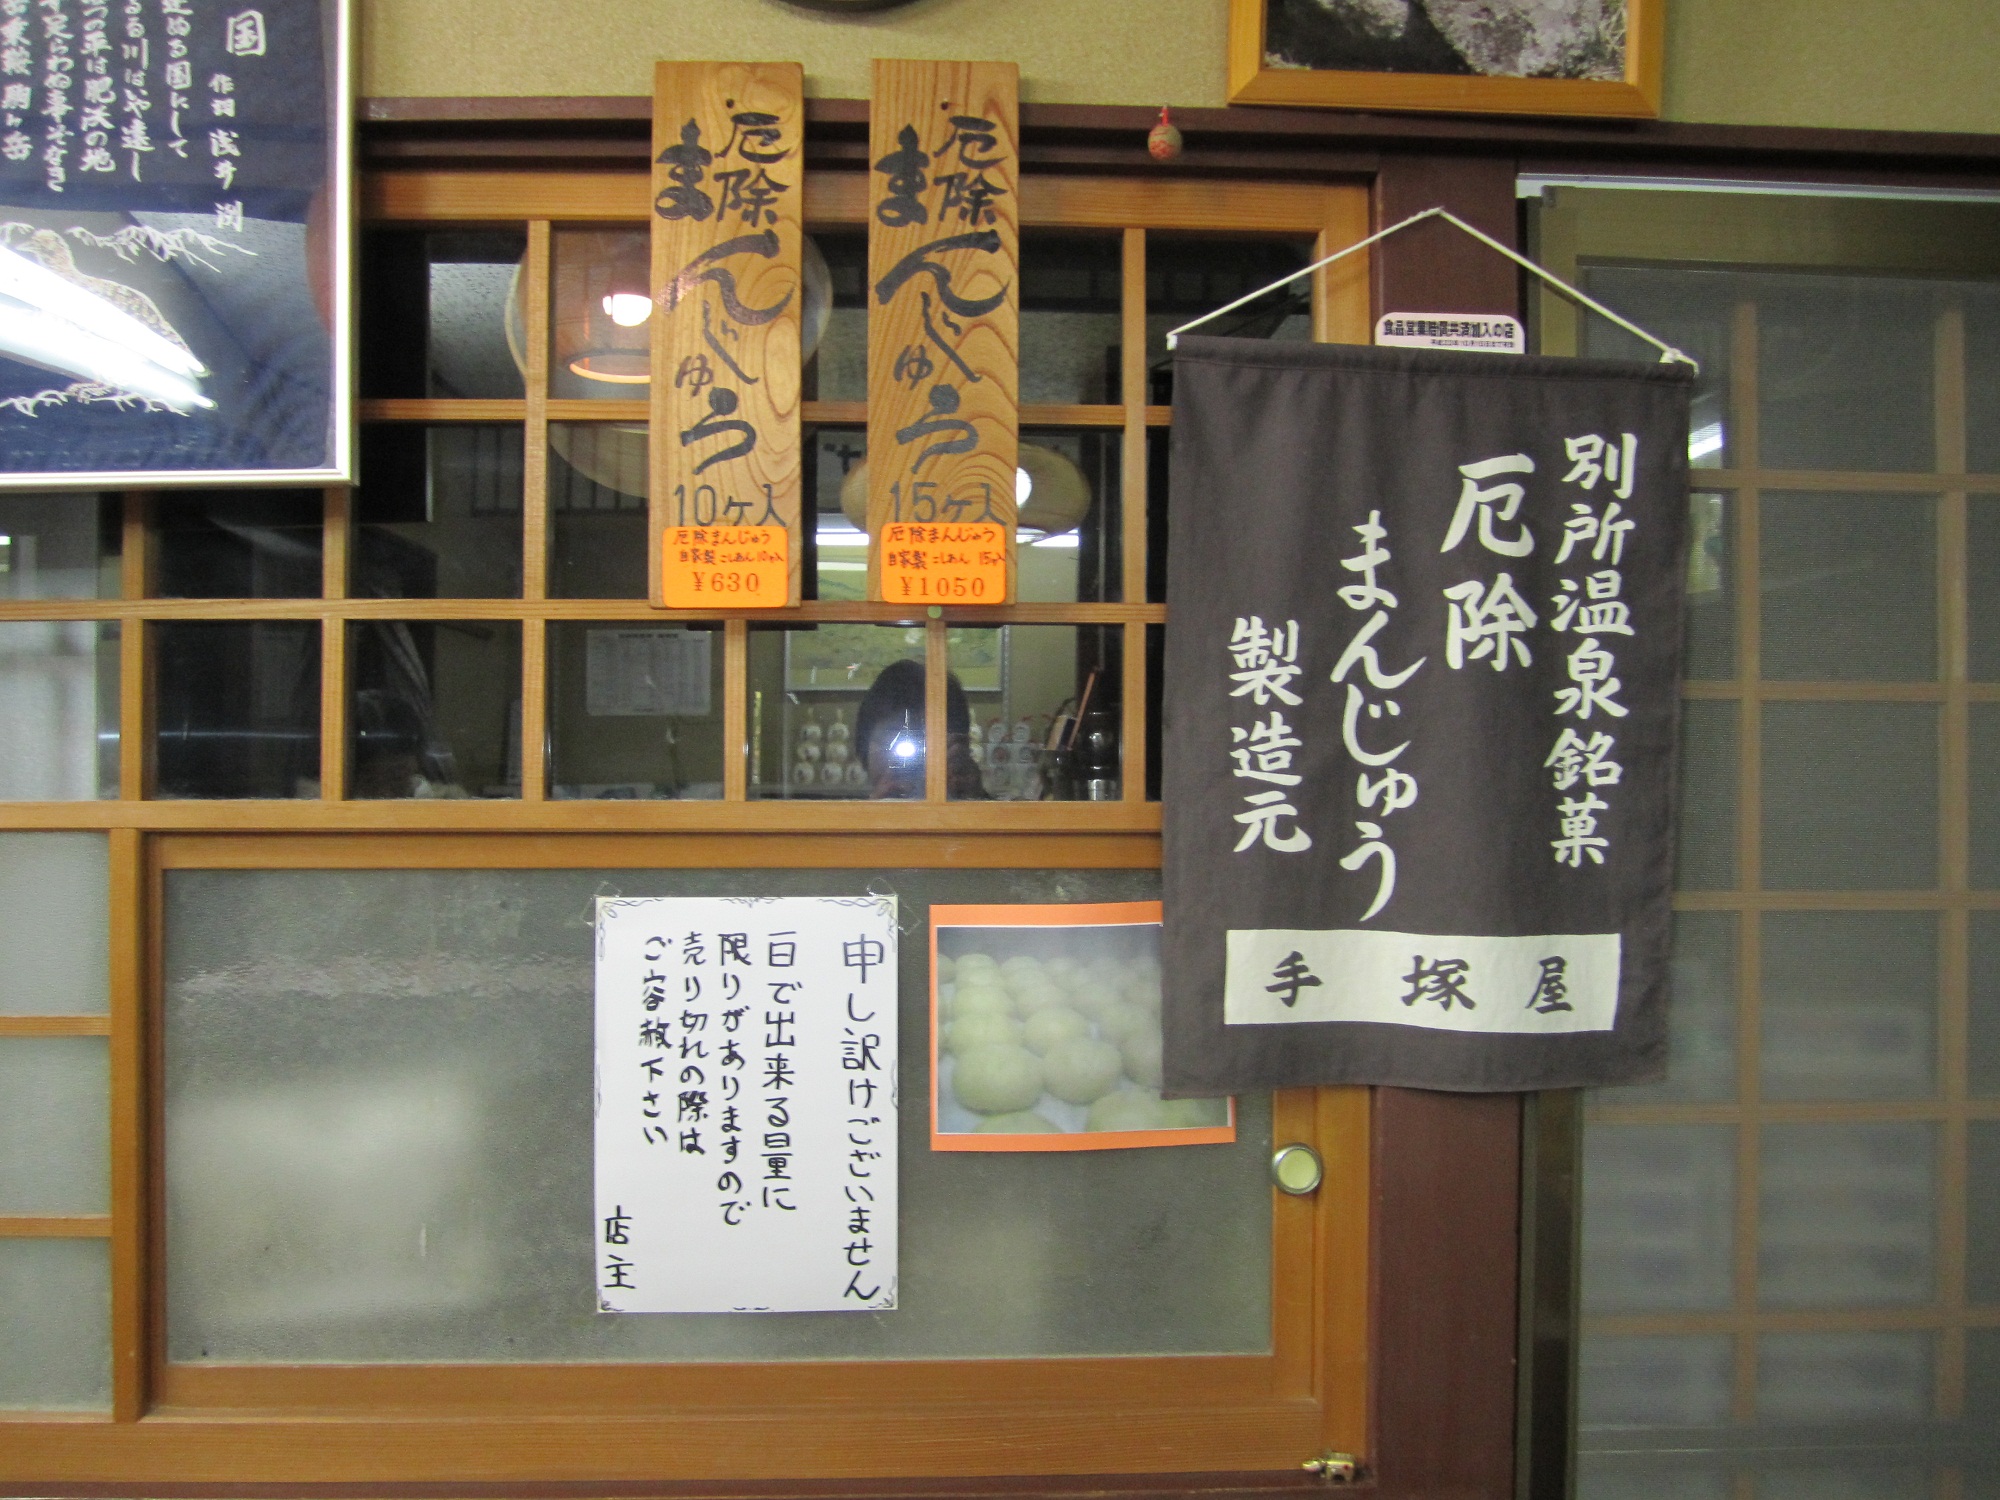 国
作詞 浅井 洌
連ぬる国にして
る川はいや遠し
つの平は肥沃の地
す足らわぬ事ぞなき
岳乗鞍駒ヶ岳
厄除
まんじゅう
10ヶ入
厄除まんじゅう
自家製 こしあん 10ヶ入
¥630
厄除
まんじゅう
15ヶ入
厄除まんじゅう
自家製 こしあん 15ヶ入
¥1050
食品営業賠償共済加入の店
別所温泉銘菓
厄除
まんじゅう
製造元
手塚屋
申し訳けございません
一日で出来る量に
限りがありますので
売り切れの際は
ご容赦下さい
店主